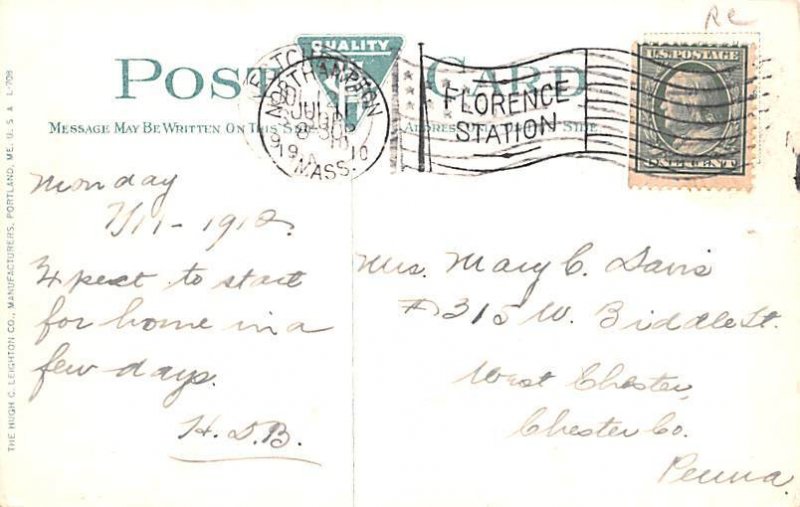 Rc
QUALITY
POST CARD
MESSAGE MAY BE WRITTEN ON THIS SIDE
ADDRESS SIDE
NORTHAMPTON
JUL 11
8 30
1910
MASS.
FLORENCE
STATION
U.S. POSTAGE
ONE CENT
Monday
7/11-1910.
Expect to start
for home in a
few days.
H.D.B.
Mrs. Mary C. Davis
#315 W. Biddle St.
West Chester,
Chester Co.
Penna.
THE HUGH C. LEIGHTON CO., MANUFACTURERS, PORTLAND, ME. U.S.A. L-708